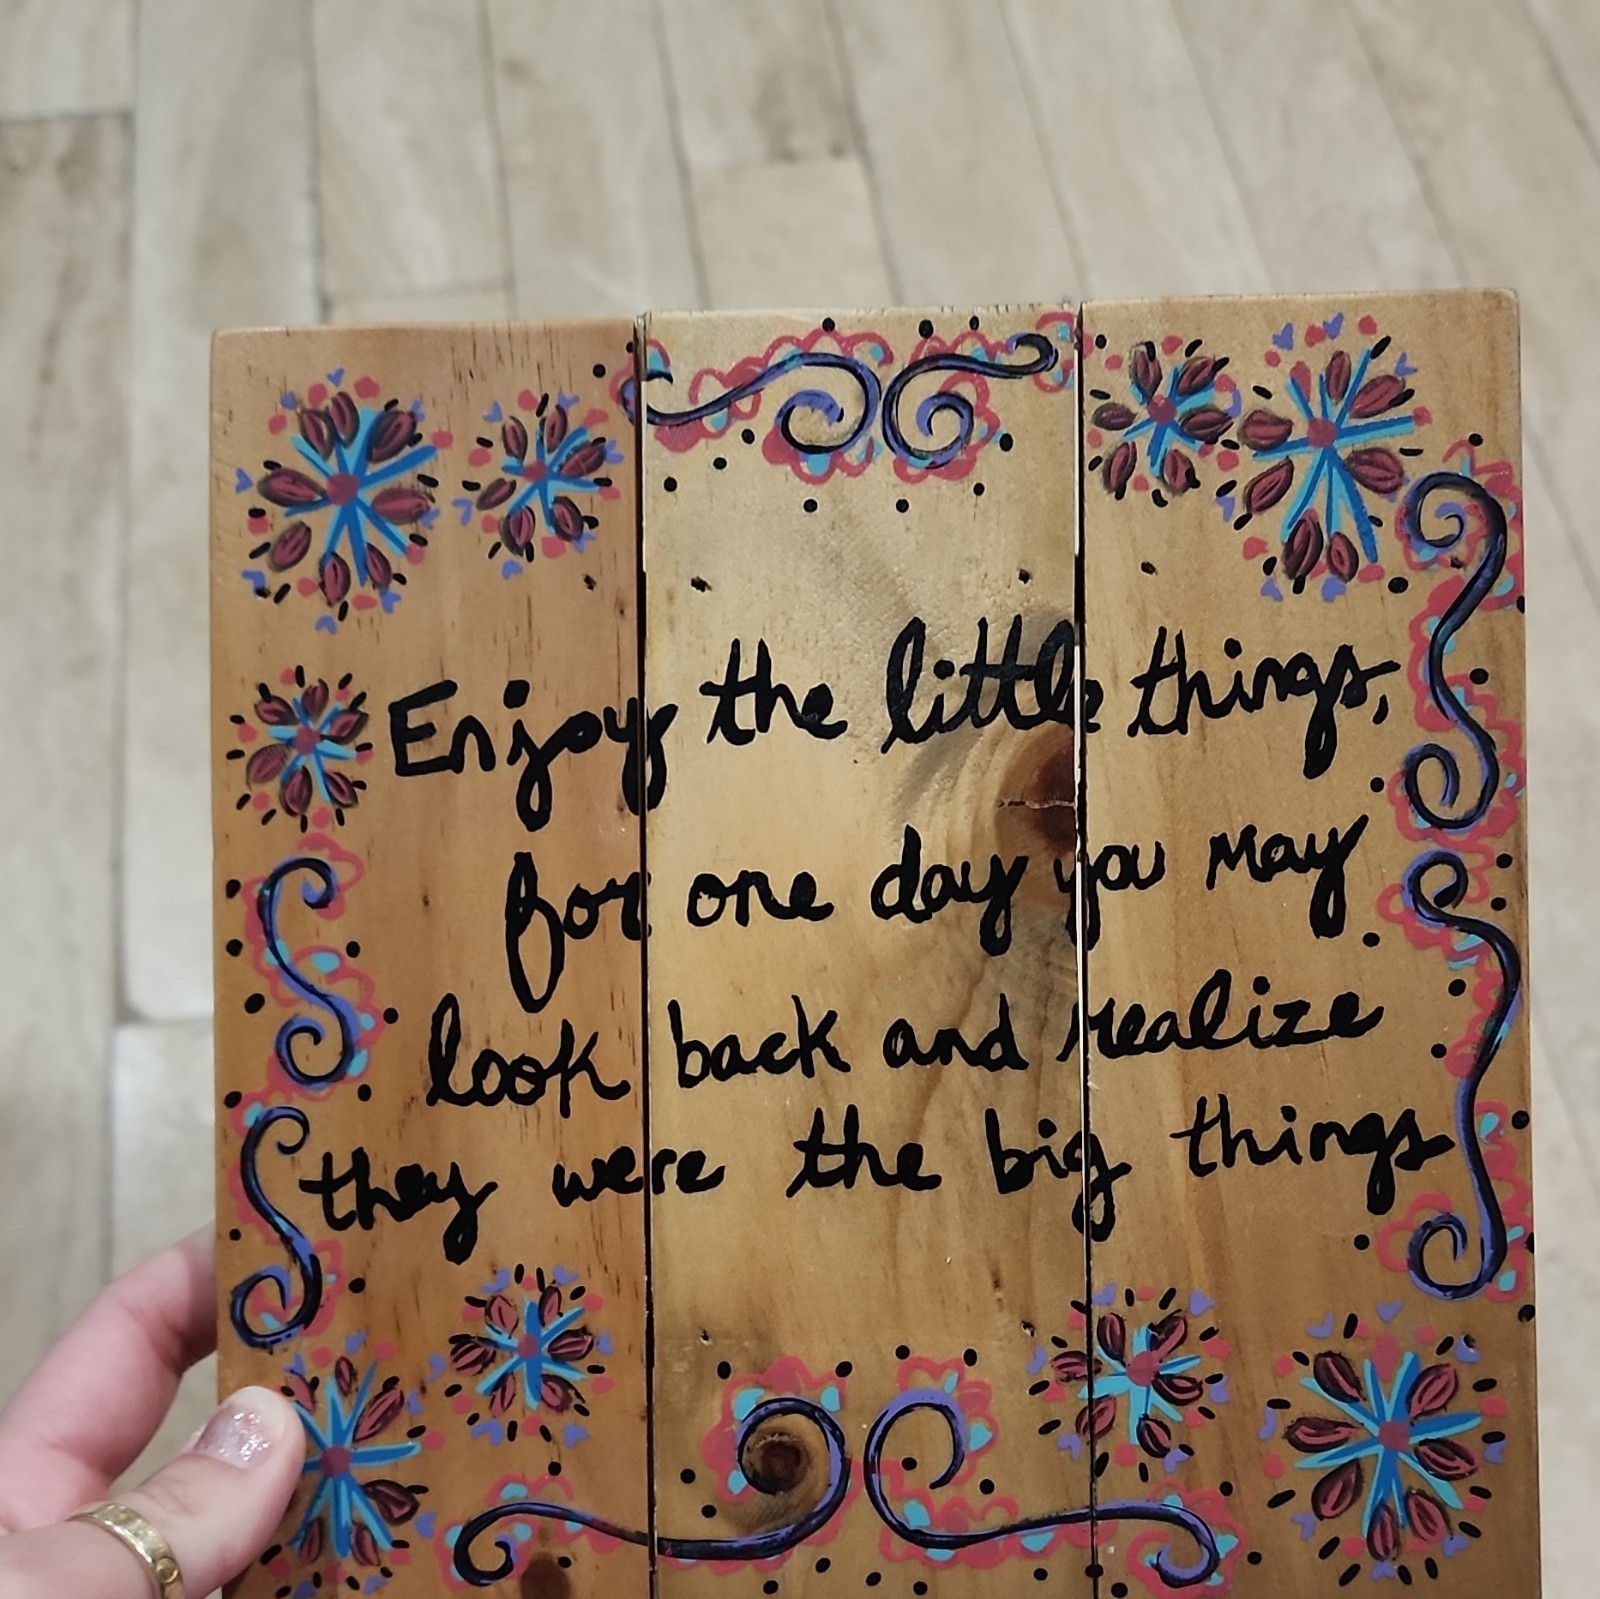 Enjoy the little things,
for one day you may
look back and realize
they were the big things